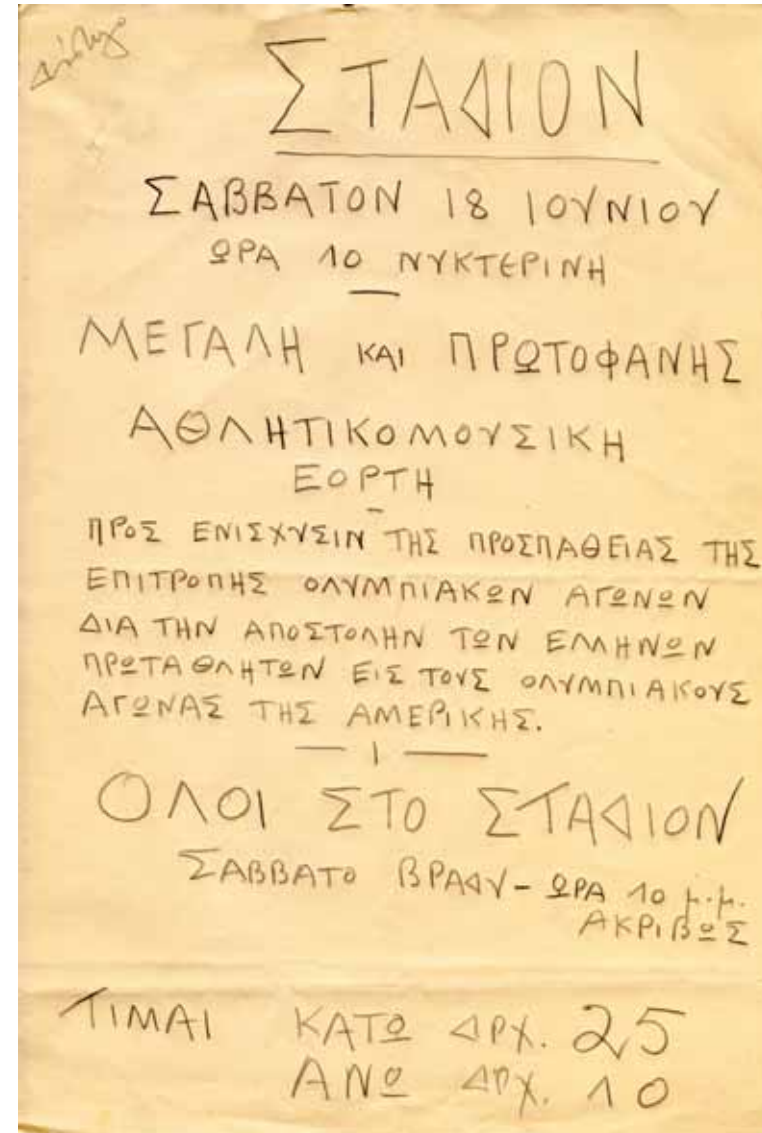 ΣΤΑΔΙΟΝ
ΣΑΒΒΑΤΟΝ 18 ΙΟΥΝΙΟΥ
ΩΡΑ 10 ΝΥΚΤΕΡΙΝΗ
ΜΕΓΑΛΗ ΚΑΙ ΠΡΩΤΟΦΑΝΗΣ
ΑΘΛΗΤΙΚΟΜΟΥΣΙΚΗ
ΕΟΡΤΗ
ΠΡΟΣ ΕΝΙΣΧΥΣΙΝ ΤΗΣ ΠΡΟΣΠΑΘΕΙΑΣ ΤΗΣ
ΕΠΙΤΡΟΠΗΣ ΟΛΥΜΠΙΑΚΩΝ ΑΓΩΝΩΝ
ΔΙΑ ΤΗΝ ΑΠΟΣΤΟΛΗΝ ΤΩΝ ΕΛΛΗΝΩΝ
ΠΡΩΤΑΘΛΗΤΩΝ ΕΙΣ ΤΟΥΣ ΟΛΥΜΠΙΑΚΟΥΣ
ΑΓΩΝΑΣ ΤΗΣ ΑΜΕΡΙΚΗΣ.
ΟΛΟΙ ΣΤΟ ΣΤΑΔΙΟΝ
ΣΑΒΒΑΤΟ ΒΡΑΔΥ - ΩΡΑ 10 μ.μ.
ΑΚΡΙΒΩΣ
ΤΙΜΑΙ ΚΑΤΩ ΔΡΧ. 25
ΑΝΩ ΔΡΧ. 10